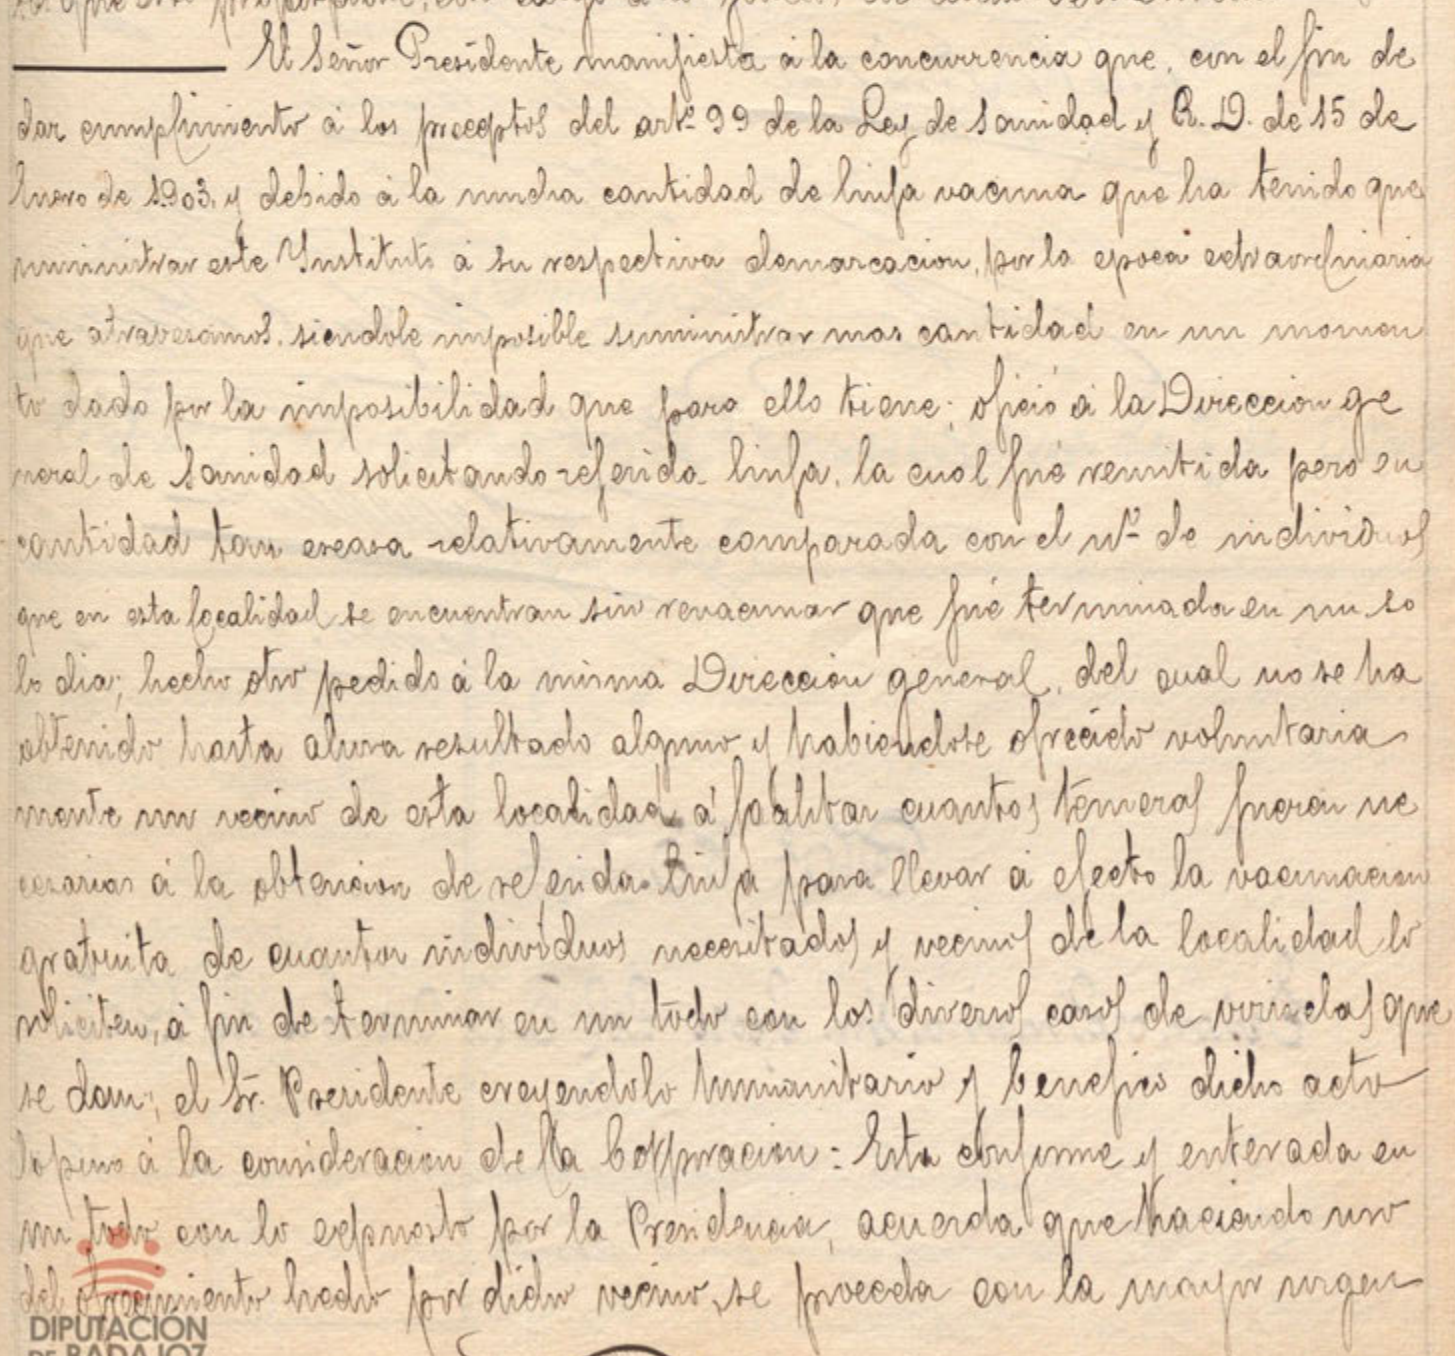 El Señor Presidente manifiesta á la concurrencia que, con el fin de
dar cumplimiento á los preceptos del artº 99 de la Ley de Sanidad y R. D. de 15 de
Enero de 1903, y debido á la mucha cantidad de linfa vacuna que ha tenido que
suministrar este Instituto á su respectiva demarcacion, por la epoca extraordinaria
que atravesamos, siendole imposible suministrar mas cantidad en un momen
to dado por la imposibilidad que para ello tiene; ofició á la Direccion ge
neral de Sanidad solicitando referida linfa, la cual fué remitida pero en
cantidad tan escasa relativamente comparada con el nº de individuos
que en esta localidad se encuentran sin revacunar que fué terminada en un so
lo dia; hecho otro pedido á la misma Direccion general, del cual no se ha
obtenido hasta ahora resultado alguno y habiendose ofrecido voluntaria
mente un vecino de esta localidad á facilitar cuantos terneras fueran ne
cesarias á la obtencion de referida linfa para llevar á efecto la vacunacion
gratuita de cuantos individuos necesitados y vecinos de la localidad lo
soliciten, á fin de terminar en un todo con los diversos casos de viruelas que
se dan; el Sr. Presidente creyendolo humanitario y benefico dicho acto
lo puso á la consideracion de la Corporacion: Esta conforme y enterada en
un todo con lo expuesto por la Presidencia, acuerda que haciendo uso
del ofrecimiento hecho por dicho vecino, se proceda con la mayor urgen
DIPUTACIÓN
DE BADAJOZ